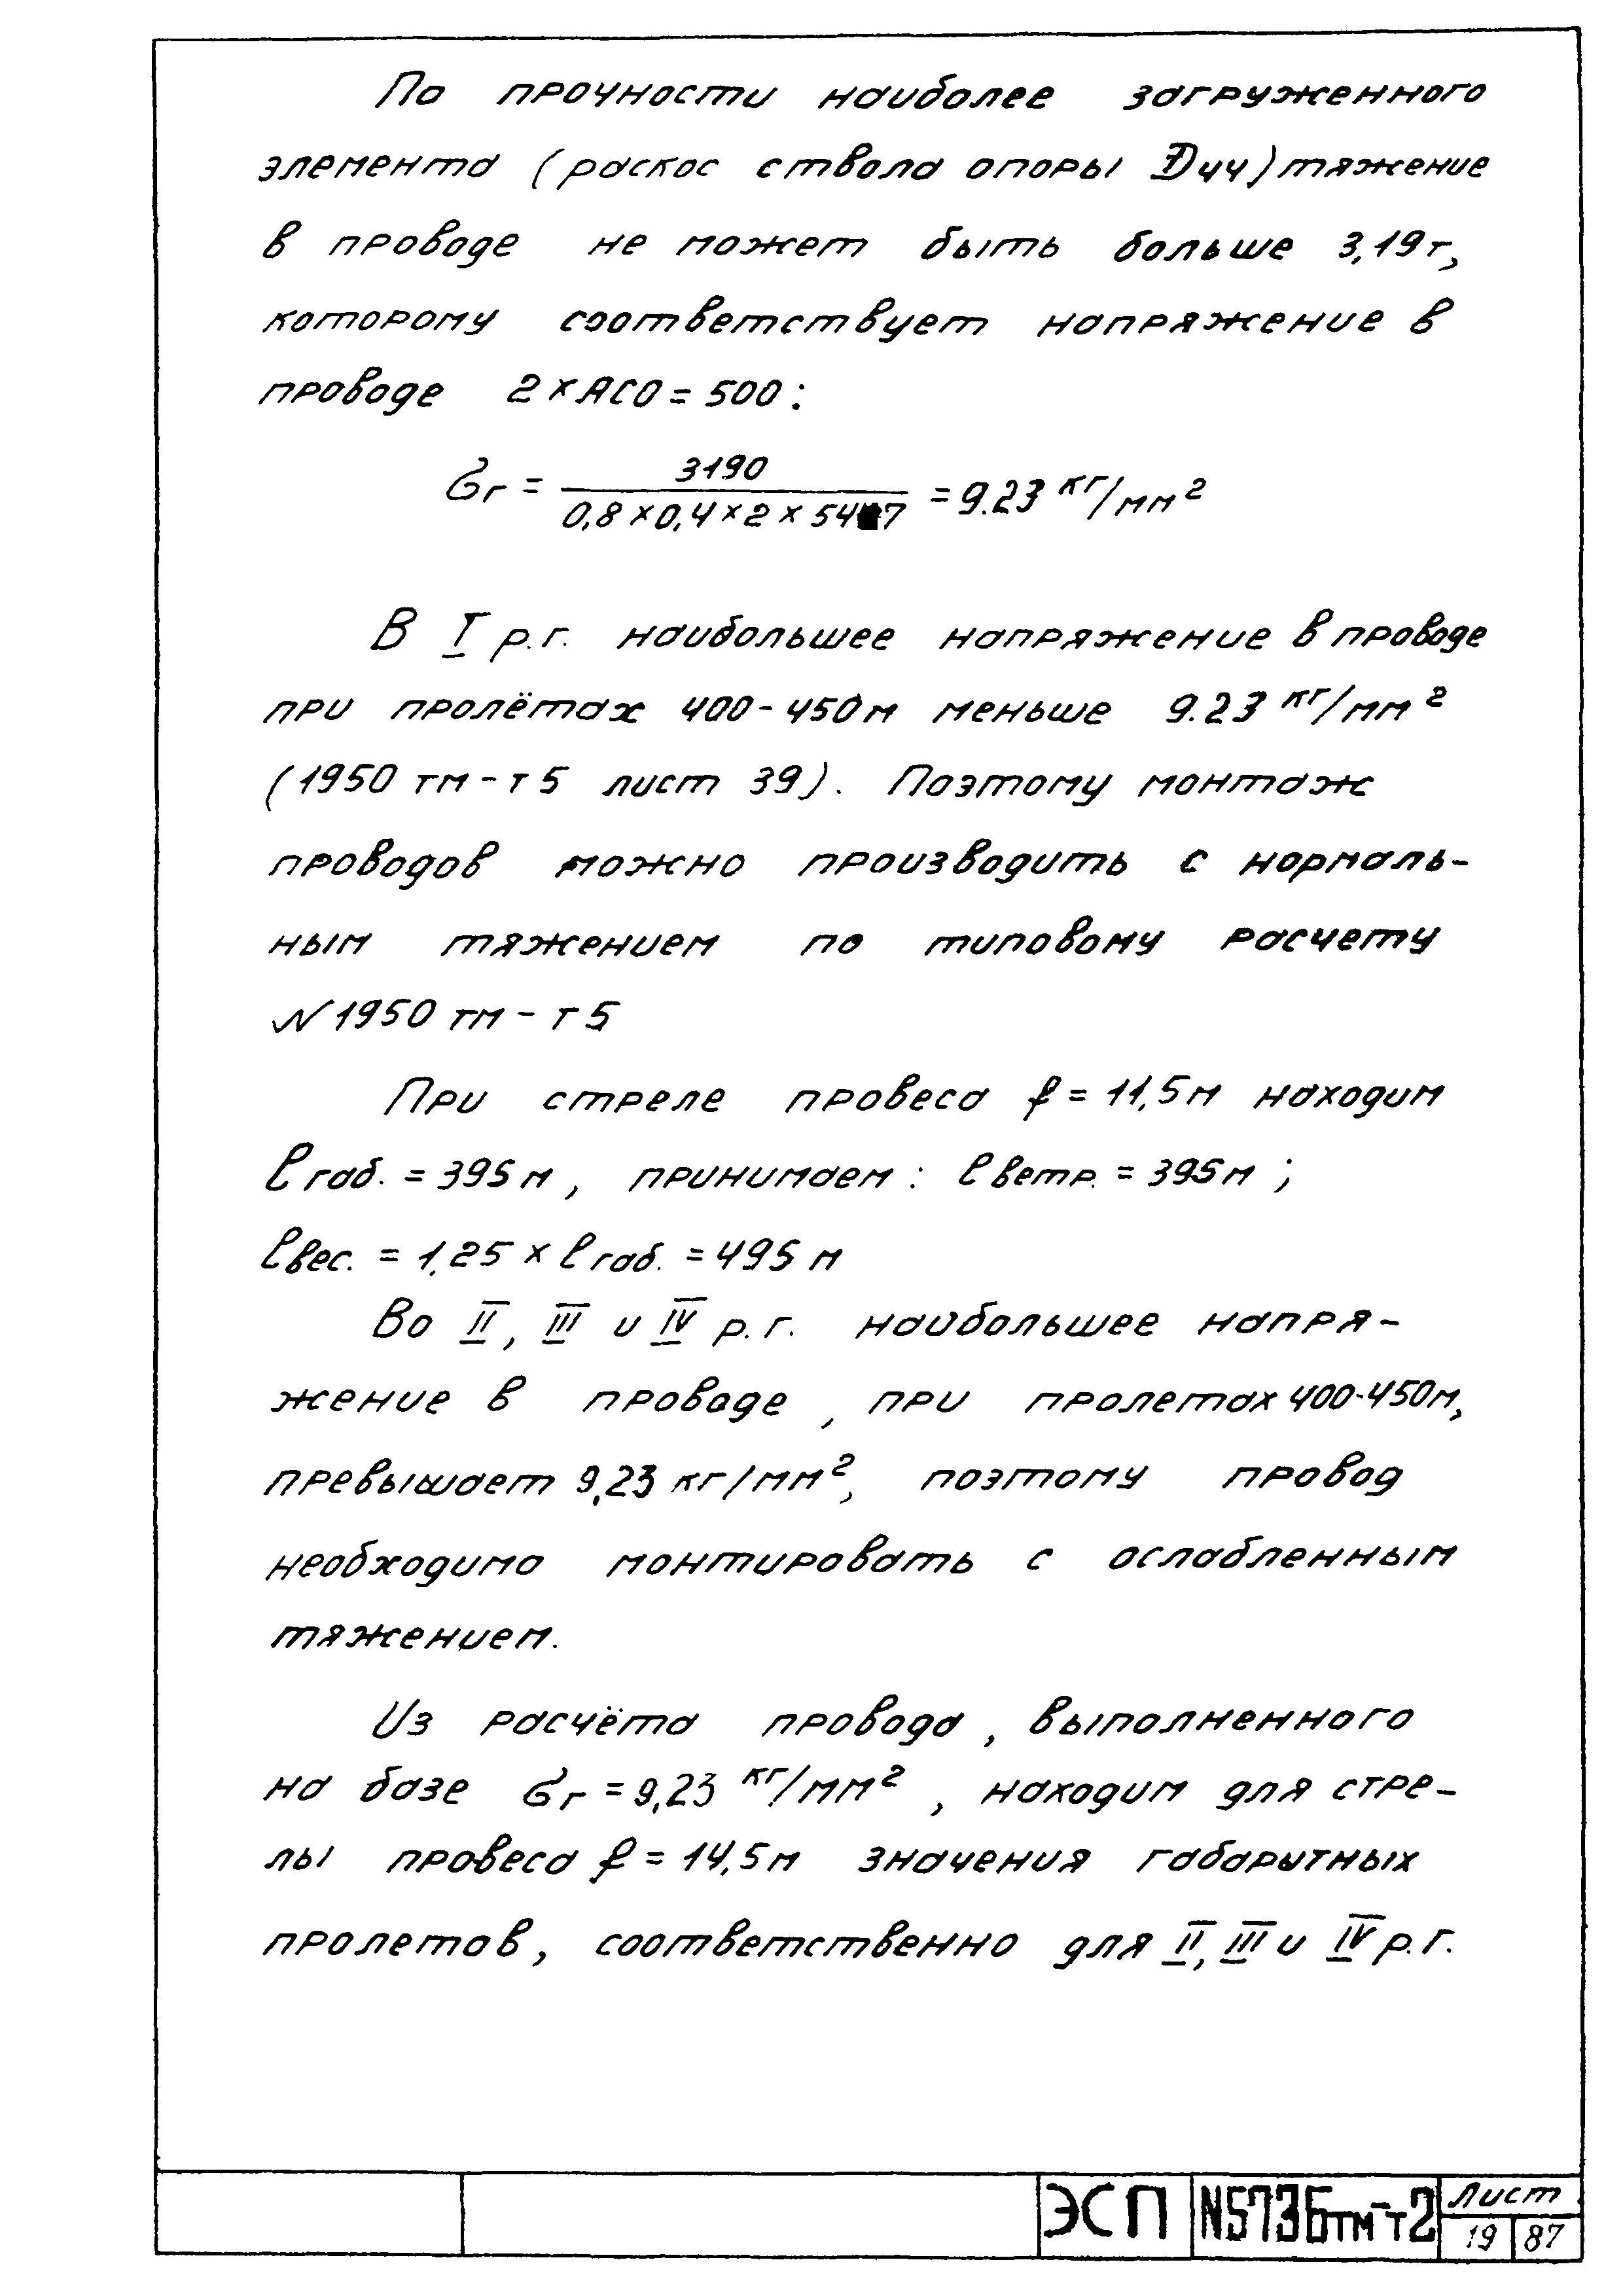 По прочности наиболее загруженного
элемента (раскос ствола опоры D44) тяжение
в проводе не может быть больше 3,19т,
которому соответствует напряжение в
проводе 2×АСО = 500:
Gг = 3190 / 0,8 × 0,4 × 2 × 54■7 = 9.23 кг/мм²
В I р.г. наибольшее напряжение в проводе
при пролётах 400-450м меньше 9.23 кг/мм²
(1950 тм - т 5 лист 39). Поэтому монтаж
проводов можно производить с нормаль-
ным тяжением по типовому расчету
N 1950 тм - т 5
При стреле провеса f = 11,5м находим
ℓ габ. = 395 м, принимаем: ℓ ветр. = 395м;
ℓ вес. = 1,25 × ℓ габ. = 495 м
Во II, III и IV р.г. наибольшее напря-
жение в проводе, при пролетах 400-450м,
превышает 9,23 кг/мм², поэтому провод
необходимо монтировать с ослабленным
тяжением.
Из расчёта провода, выполненного
на базе Gг = 9,23 кг/мм², находим для стре-
лы провеса f = 14,5м значения габаритных
пролетов, соответственно для II, III и IV р.г.
ЭСП N5736тм-т2 Лист
19 87